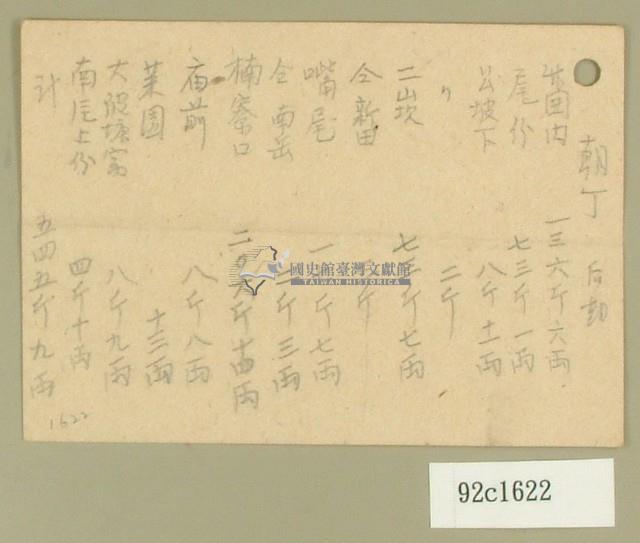 朝丁 后勤
茁內 一三六斤六両
尾份 七三斤一両
公坡下 八斤十一両
〃 二斤
二崁 七 斤七両
仝新田 斤
嘴尾 一 斤七両
仝南岳 二斤三両
楠寮口 二 六斤十四両
庙前 八斤八両
菜園 十三両
大陂塘窩 八斤九両
南尾上份 四斤十両
計 五四五斤九両
1622
國史館臺灣文獻館
TAIWAN HISTORICA
92c1622